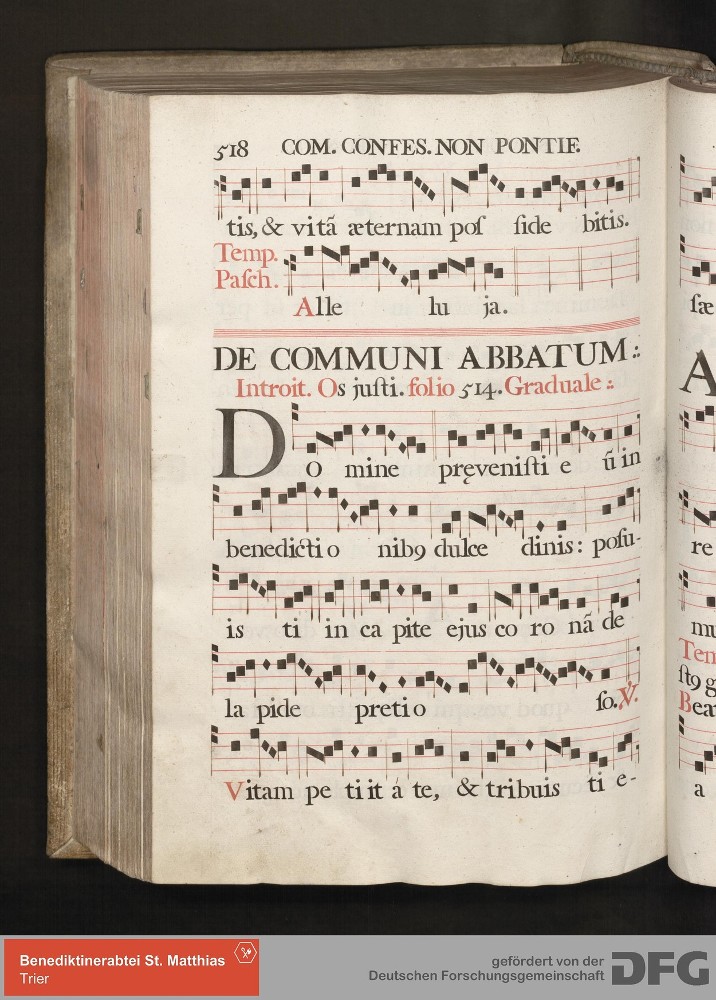 518 COM. CONFES. NON PONTIF.
tis, & vitã æternam poſ ſide bitis.
Temp.
Paſch.
Alle lu ja.
DE COMMUNI ABBATUM :.
Introit. Os juſti. folio 514. Graduale :.
DO mine pręveniſti e ũ in
benedicti o nibꝯ dulce dinis: poſu-
is ti in ca pite ejus co ro nã de
la pide preti o ſo. ℣.
Vitam pe ti it á te, & tribuis ti e-
ſæ
A
re
mu
Tem
ſtꝯ g
Bea
a
Benediktinerabtei St. Matthias
Trier
gefördert von der
Deutschen Forschungsgemeinschaft
DFG